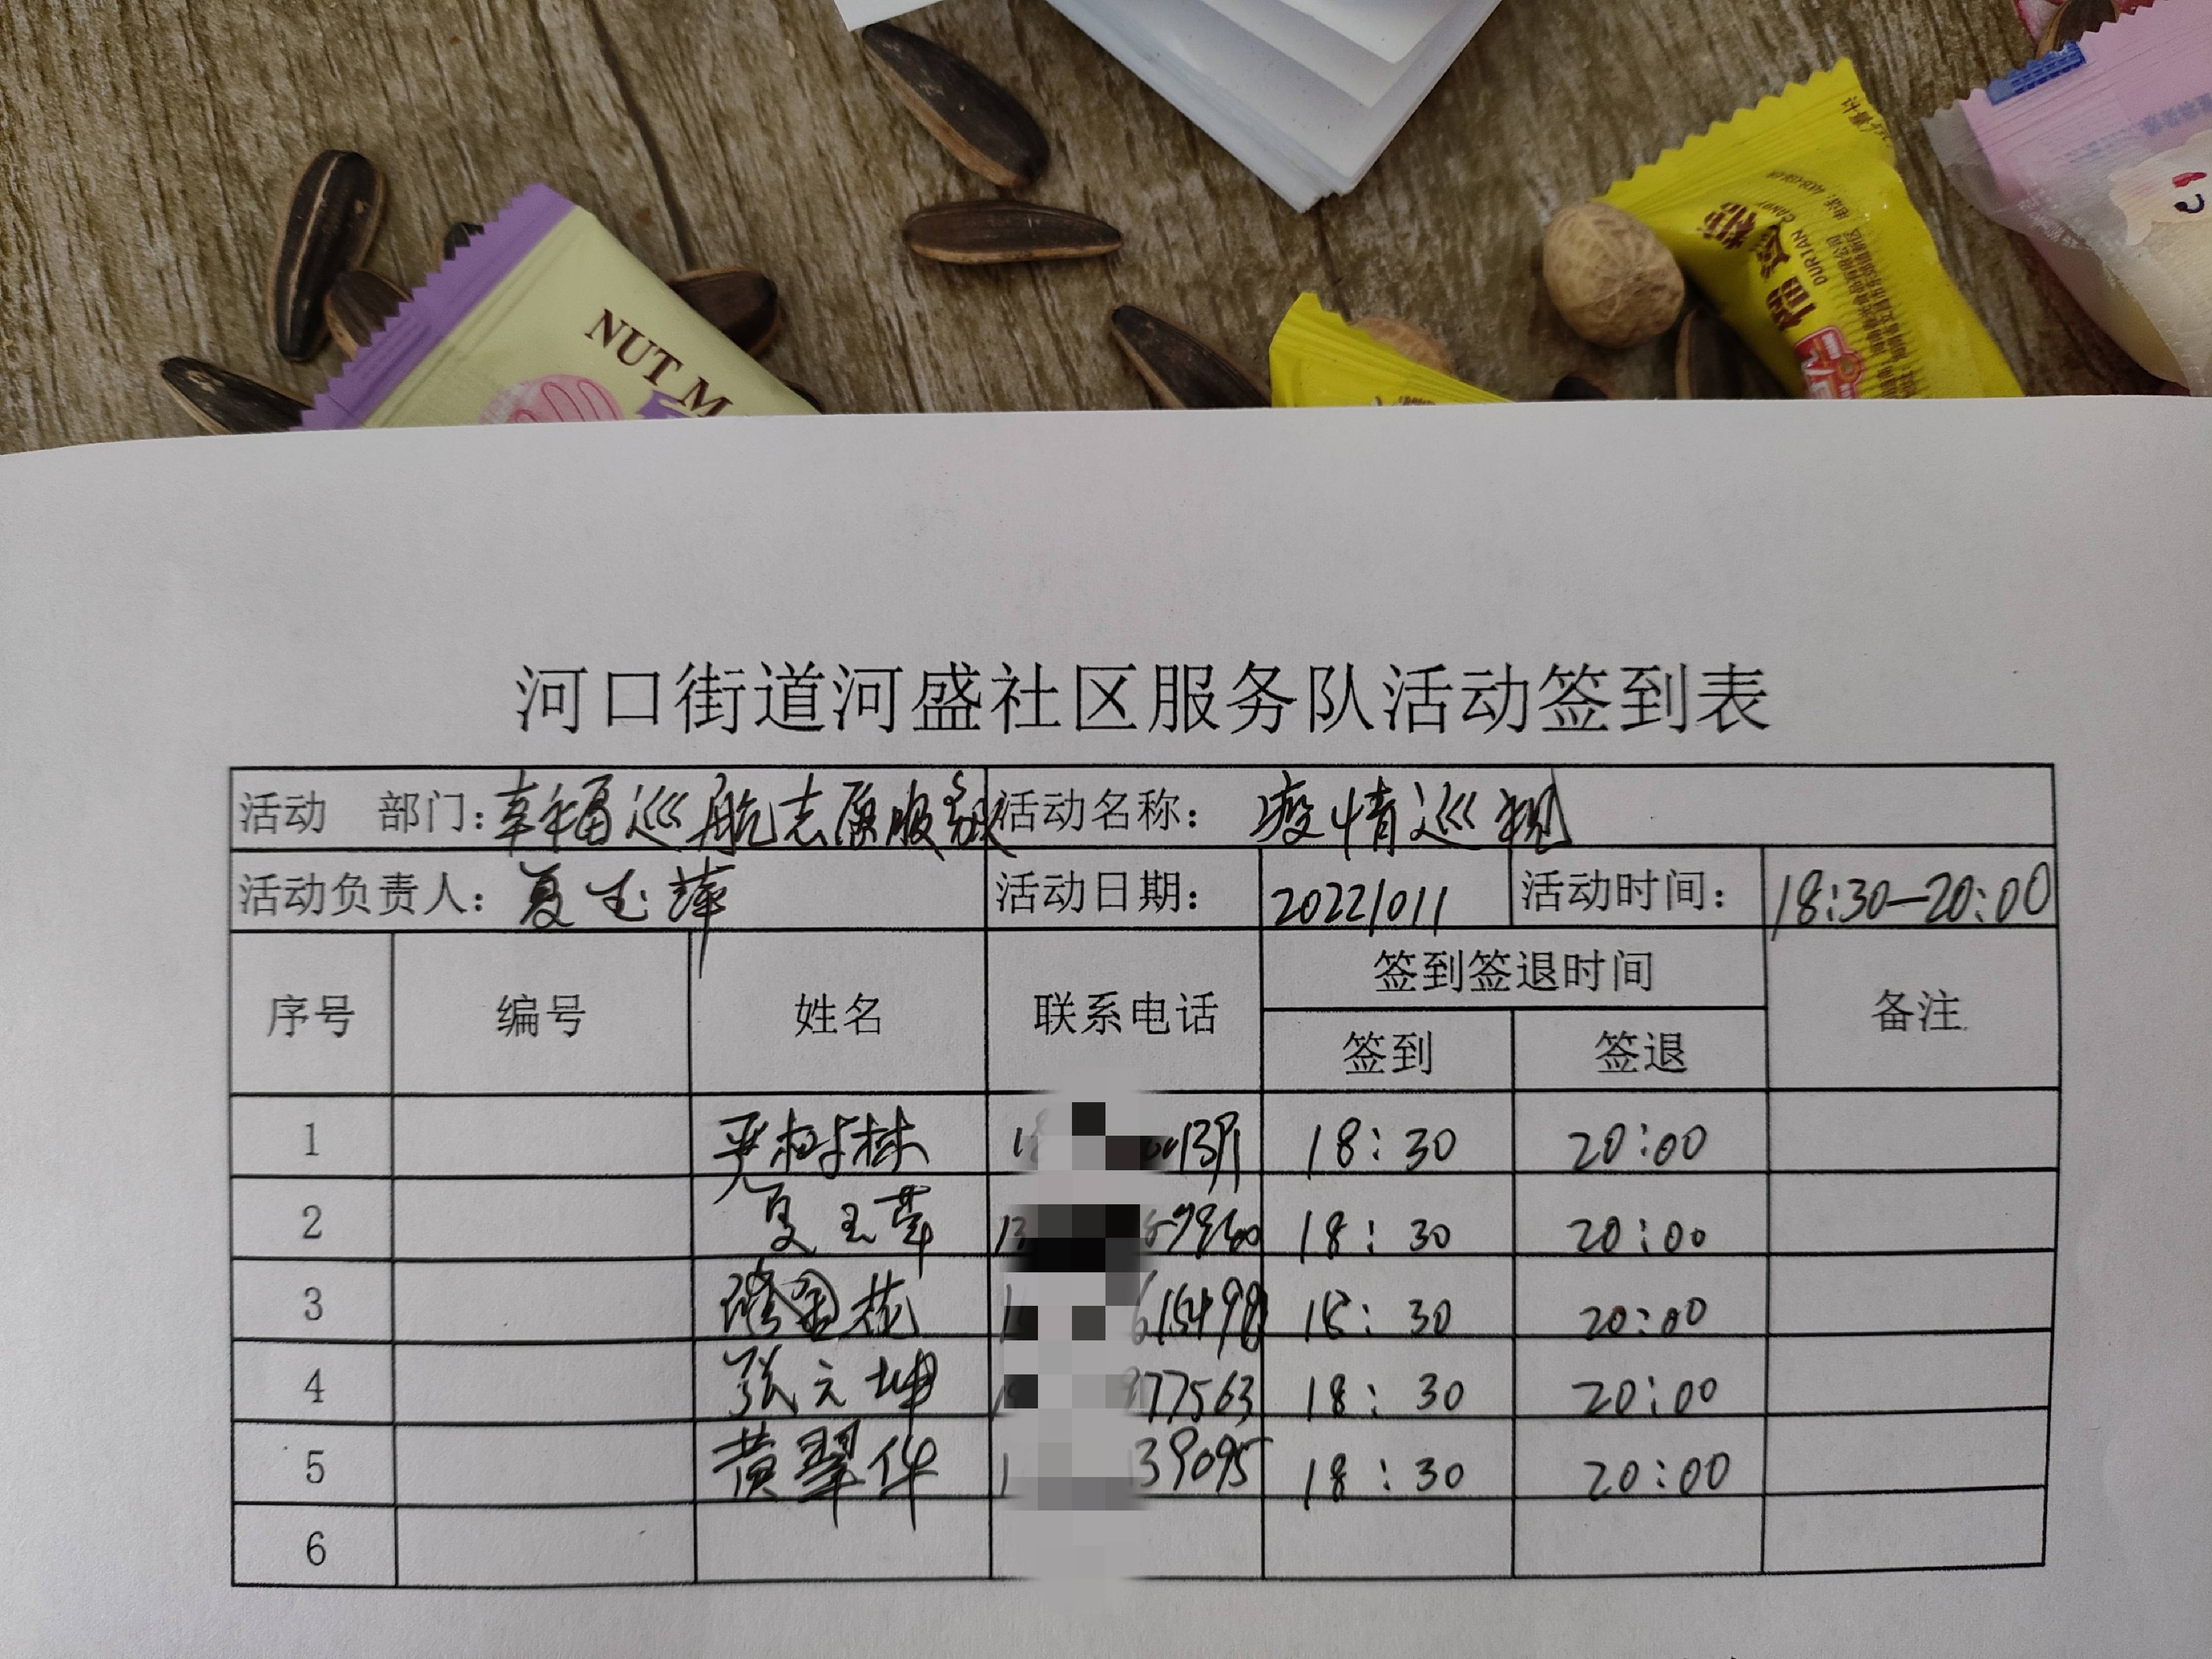 NUT M
榴莲糖
DURIAN CANDY
河口街道河盛社区服务队活动签到表
活动 部门：幸福巡航志愿服务队 活动名称： 疫情巡视
活动负责人：夏玉萍 活动日期： 20221011 活动时间： 18:30—20:00
序号 编号 姓名 联系电话 签到签退时间 备注
签到 签退
1 严树林 18:30 20:00
2 夏玉萍 18:30 20:00
3 花 615498 18:30 20:00
4 张元坤 977563 18:30 20:00
5 黄翠华 39095 18:30 20:00
6